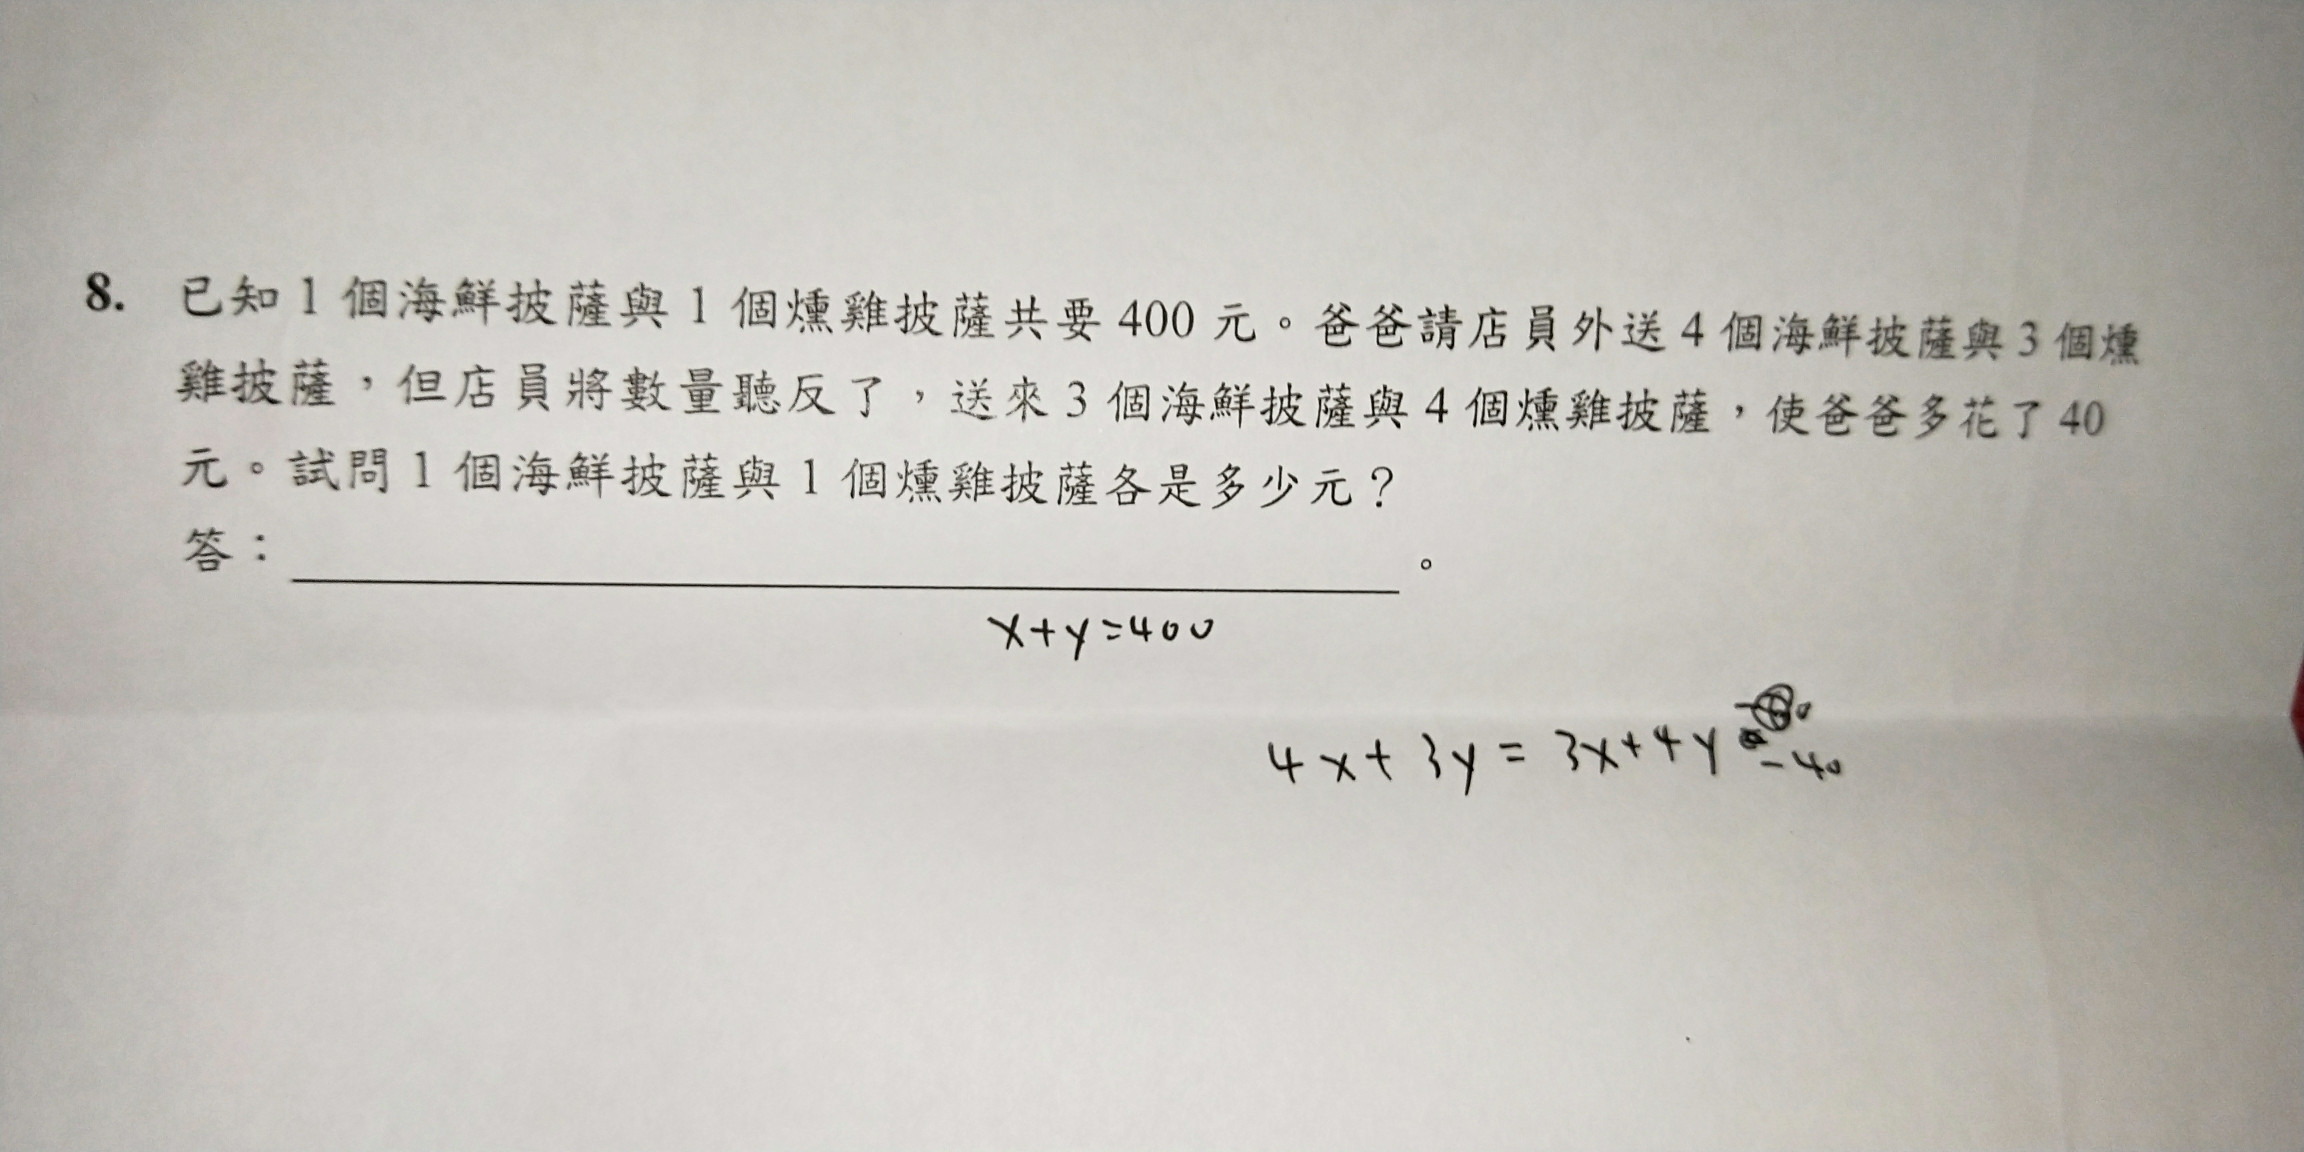 8. 已知 1 個海鮮披薩與 1 個燻雞披薩共要 400 元。爸爸請店員外送 4 個海鮮披薩與 3 個燻
雞披薩，但店員將數量聽反了，送來 3 個海鮮披薩與 4 個燻雞披薩，使爸爸多花了 40
元。試問 1 個海鮮披薩與 1 個燻雞披薩各是多少元？
答：。
x+y=400
4x+3y=3x+4y-40